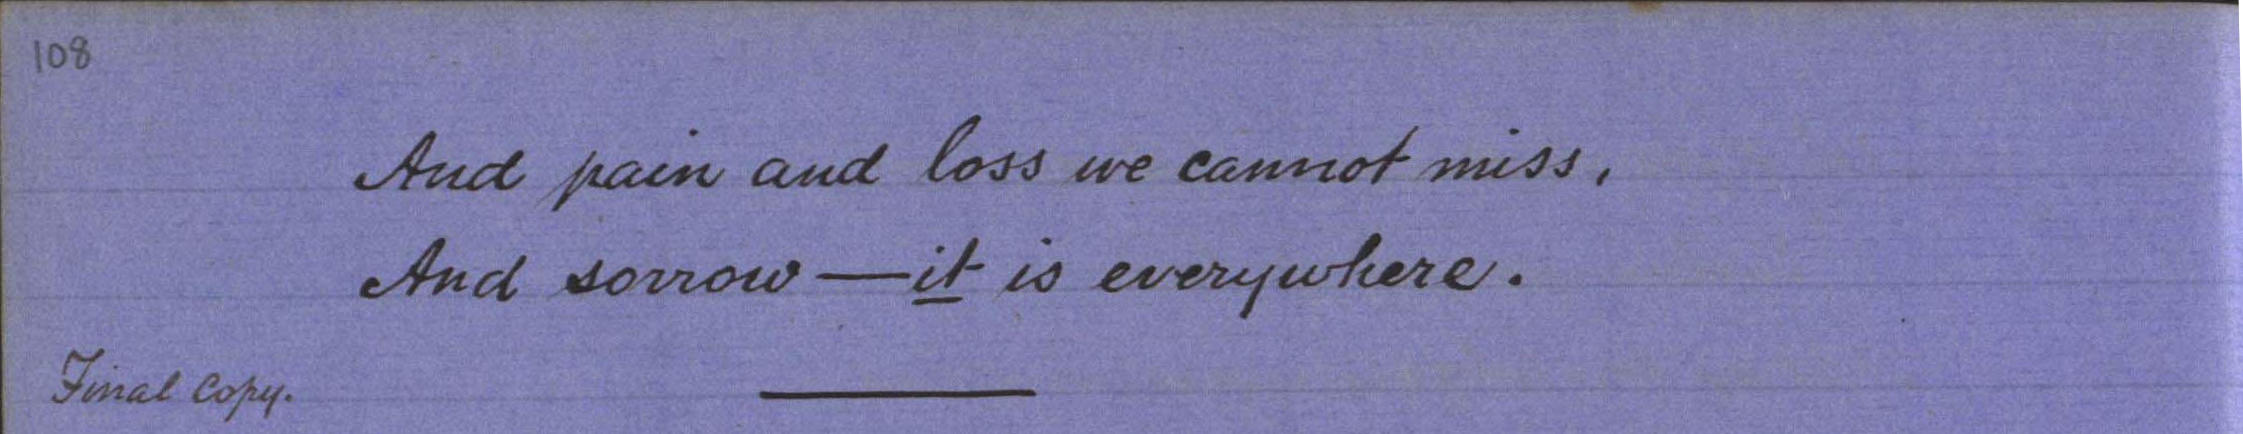 108
And pain and loss we cannot miss,
And sorrow—it is everywhere.
Final Copy.